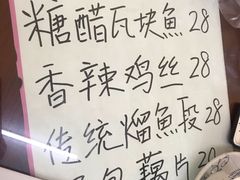 糖醋瓦块魚 28
香辣鸡丝 28
传统熘魚段 28
藕片 20